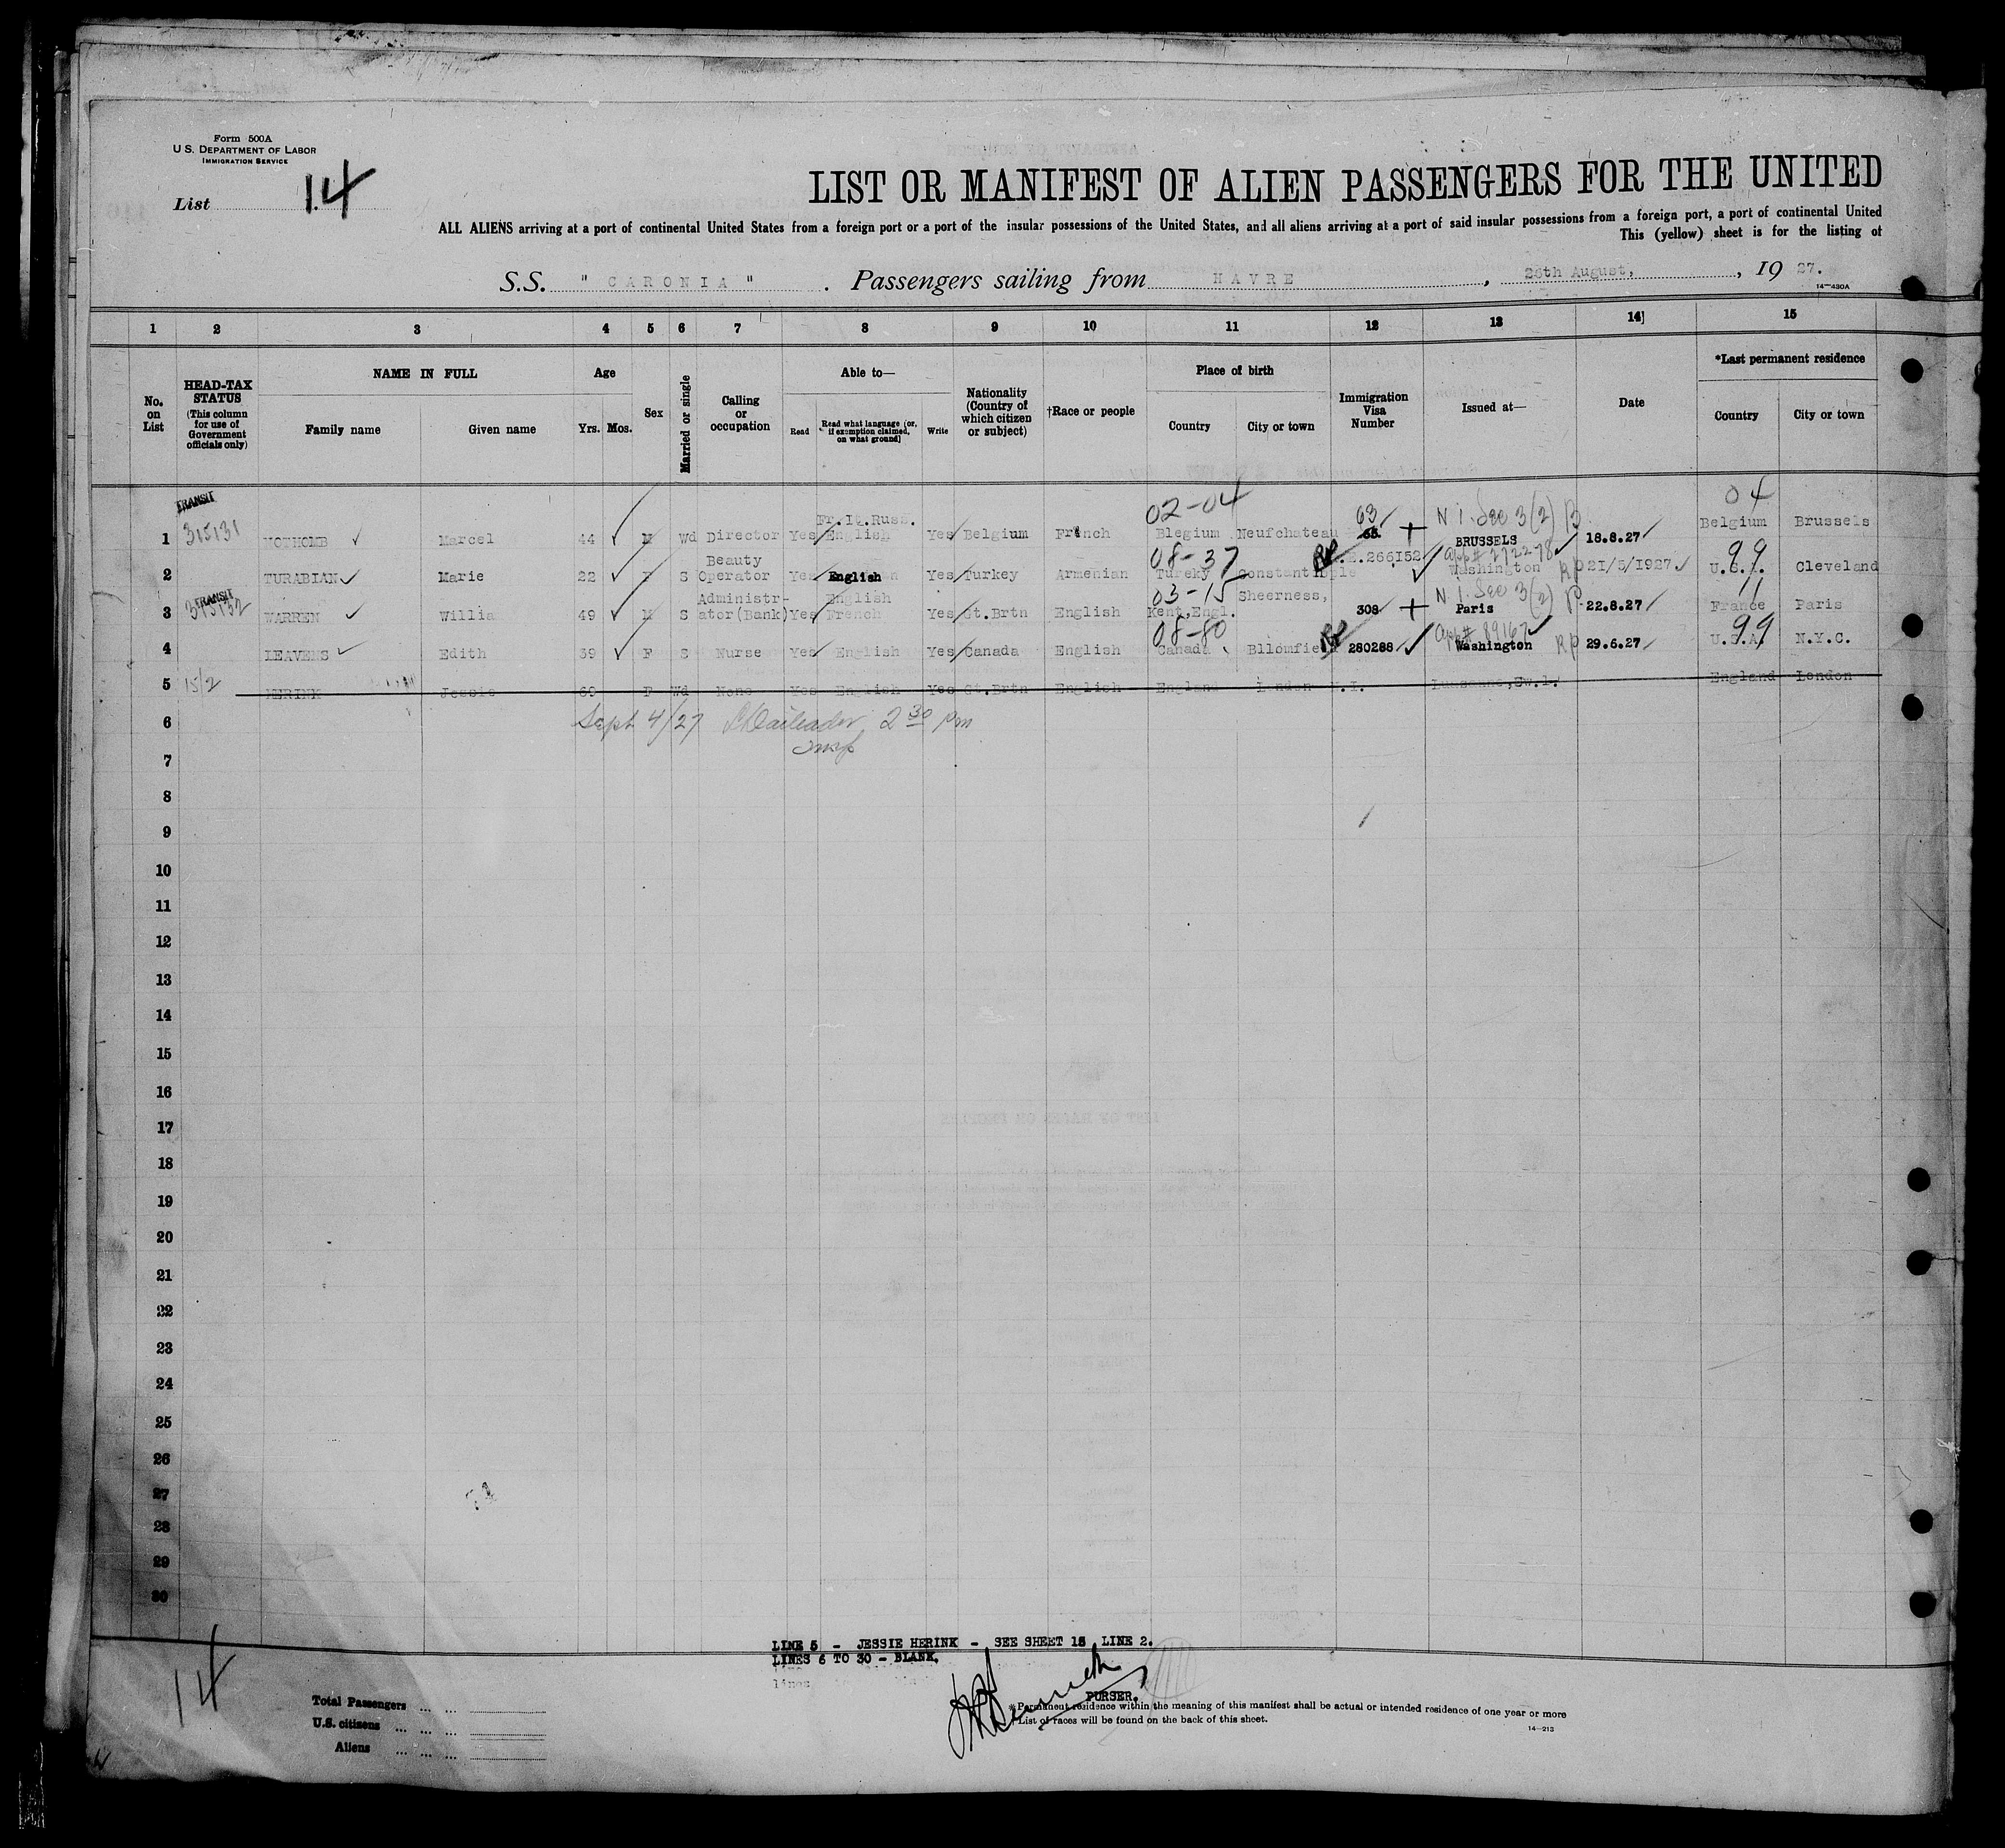 Form 500A
U. S. DEPARTMENT OF LABOR
IMMIGRATION SERVICE
List 14
LIST OR MANIFEST OF ALIEN PASSENGERS FOR THE UNITED
ALL ALIENS arriving at a port of continental United States from a foreign port or a port of the insular possessions of the United States, and all aliens arriving at a port of said insular possessions from a foreign port, a port of continental United
This (yellow) sheet is for the listing of
S.S. " CARONIA " . Passengers sailing from HAVRE , 26th August, , 19 27.
14—430A
1 2 3 4 5 6 7 8 9 10 11 12 13 14 15
No. on List
HEAD-TAX STATUS (This column for use of Government officials only)
NAME IN FULL
Family name Given name
Age
Yrs. Mos.
Sex
Married or single
Calling or occupation
Able to—
Read Read what language (or, if exemption claimed, on what ground) Write
Nationality (Country of which citizen or subject)
†Race or people
Place of birth
Country City or town
Immigration Visa Number
Issued at—
Date
*Last permanent residence
Country City or town
TRANSIT 02-04 04
Fr.It.Russ. 63 N I. Sec 3(2)
1 315131 NOTHOMB Marcel 44 M Wd Director Yes English Yes Belgium French Blegium Neufchateau 65 BRUSSELS 18.8.27 Belgium Brussels
Beauty 08-37 App# 272278 99
2 TURABIAN Marie 22 F S Operator Yes English Yes Turkey Armenian Tureky Constantinple 266152 Washington RP 21/5/1927 U.S.A. Cleveland
TRANSIT Administr- English 03-15 Sheerness, N I. Sec 3(2) 11
3 315132 WARREN Willia 49 M S ator(Bank) Yes French Yes Gt.Brtn English Kent,Engl. 308 Paris 22.8.27 France Paris
08-80 App# 89167 99
4 LEAVENS Edith 39 F S Nurse Yes English Yes Canada English Canada Bllomfield 280288 Washington RP 29.6.27 U.S.A. N.Y.C.
5 15/2 HERINK Jessie 60 F Wd None Yes English Yes Gt.Brtn English England London N.I. Lausanne,Sw.l. England London
6 Sept 4/27 2 30 pm
Insp
7
8
9
10
11
12
13
14
15
16
17
18
19
20
21
22
23
24
25
26
27
28
29
30
LINE 5 - JESSIE HERINK - SEE SHEET 15 LINE 2.
LINES 6 TO 30 - BLANK.
lines
14
PURSER.
Total Passengers ... ...
U.S. citizens ... ... ...
Aliens ... ... ...
*Permanent residence within the meaning of this manifest shall be actual or intended residence of one year or more
†List of races will be found on the back of this sheet.
14—213